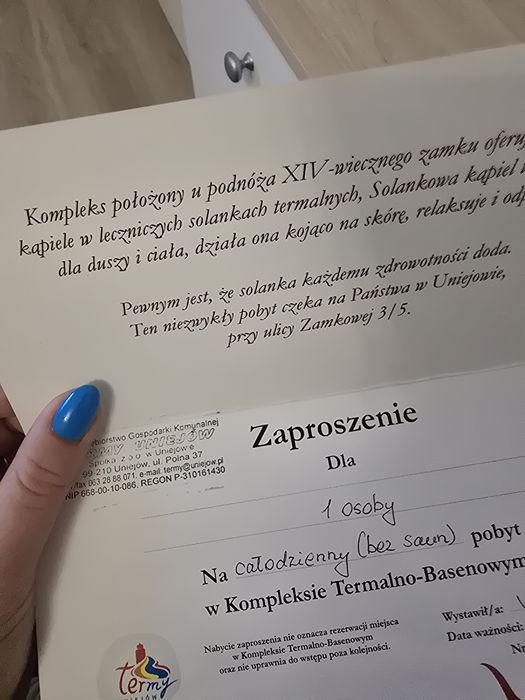 Kompleks położony u podnóża XIV-wiecznego zamku oferuj
kąpiele w leczniczych solankach termalnych, Solankowa kąpiel
dla duszy i ciała, działa ona kojąco na skórę, relaksuje i odp
Pewnym jest, że solanka każdemu zdrowotności doda.
Ten niezwykły pobyt czeka na Państwa w Uniejowie,
przy ulicy Zamkowej 3/5.
ębiorstwo Gospodarki Komunalnej
RMY UNIEJÓW
Spółka z o.o. w Uniejowie
99-210 Uniejów, ul. Polna 37
/fax 063 28 88 071, e-mail: termy@uniejow.pl
NIP 668-00-10-086, REGON P-310161430
Zaproszenie
Dla
1 osoby
Na całodzienny (bez saun) pobyt
w Kompleksie Termalno-Basenowym
Nabycie zaproszenia nie oznacza rezerwacji miejsca
w Kompleksie Termalno-Basenowym
oraz nie uprawnia do wstępu poza kolejności.
Wystawił/a:
Data ważności:
Nr
termy
UNIEJÓW